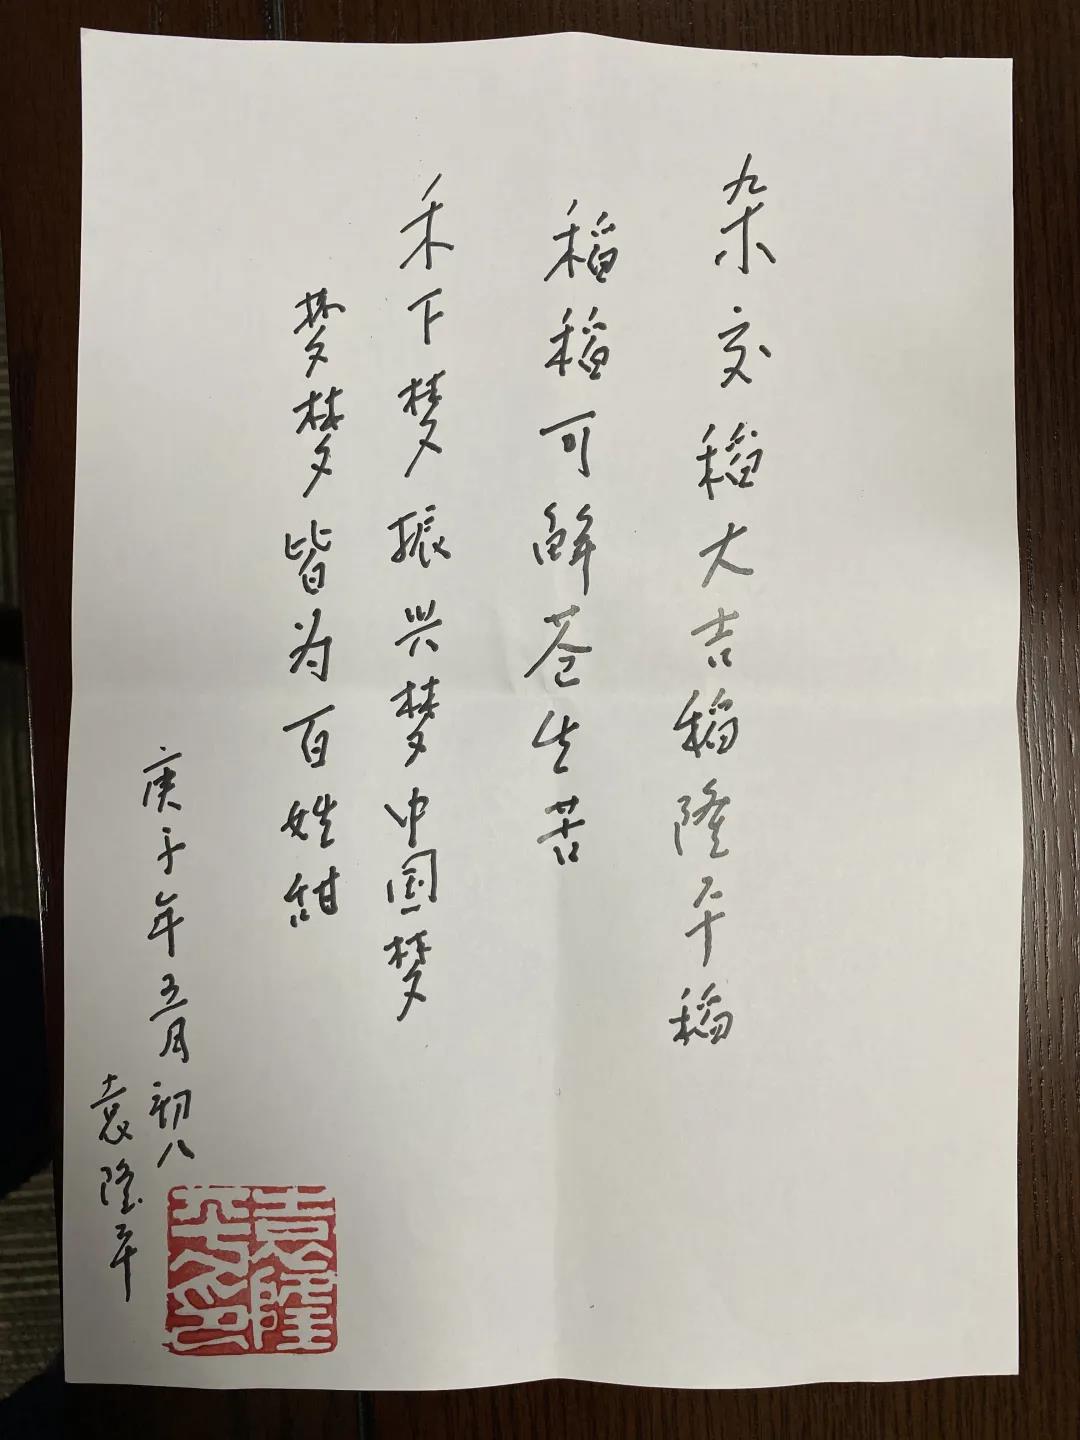 杂交稻大吉稻隆平稻
稻稻可解苍生苦
禾下梦振兴梦中国梦
梦梦皆为百姓甜
庚子年五月初八
袁隆平
袁隆平印